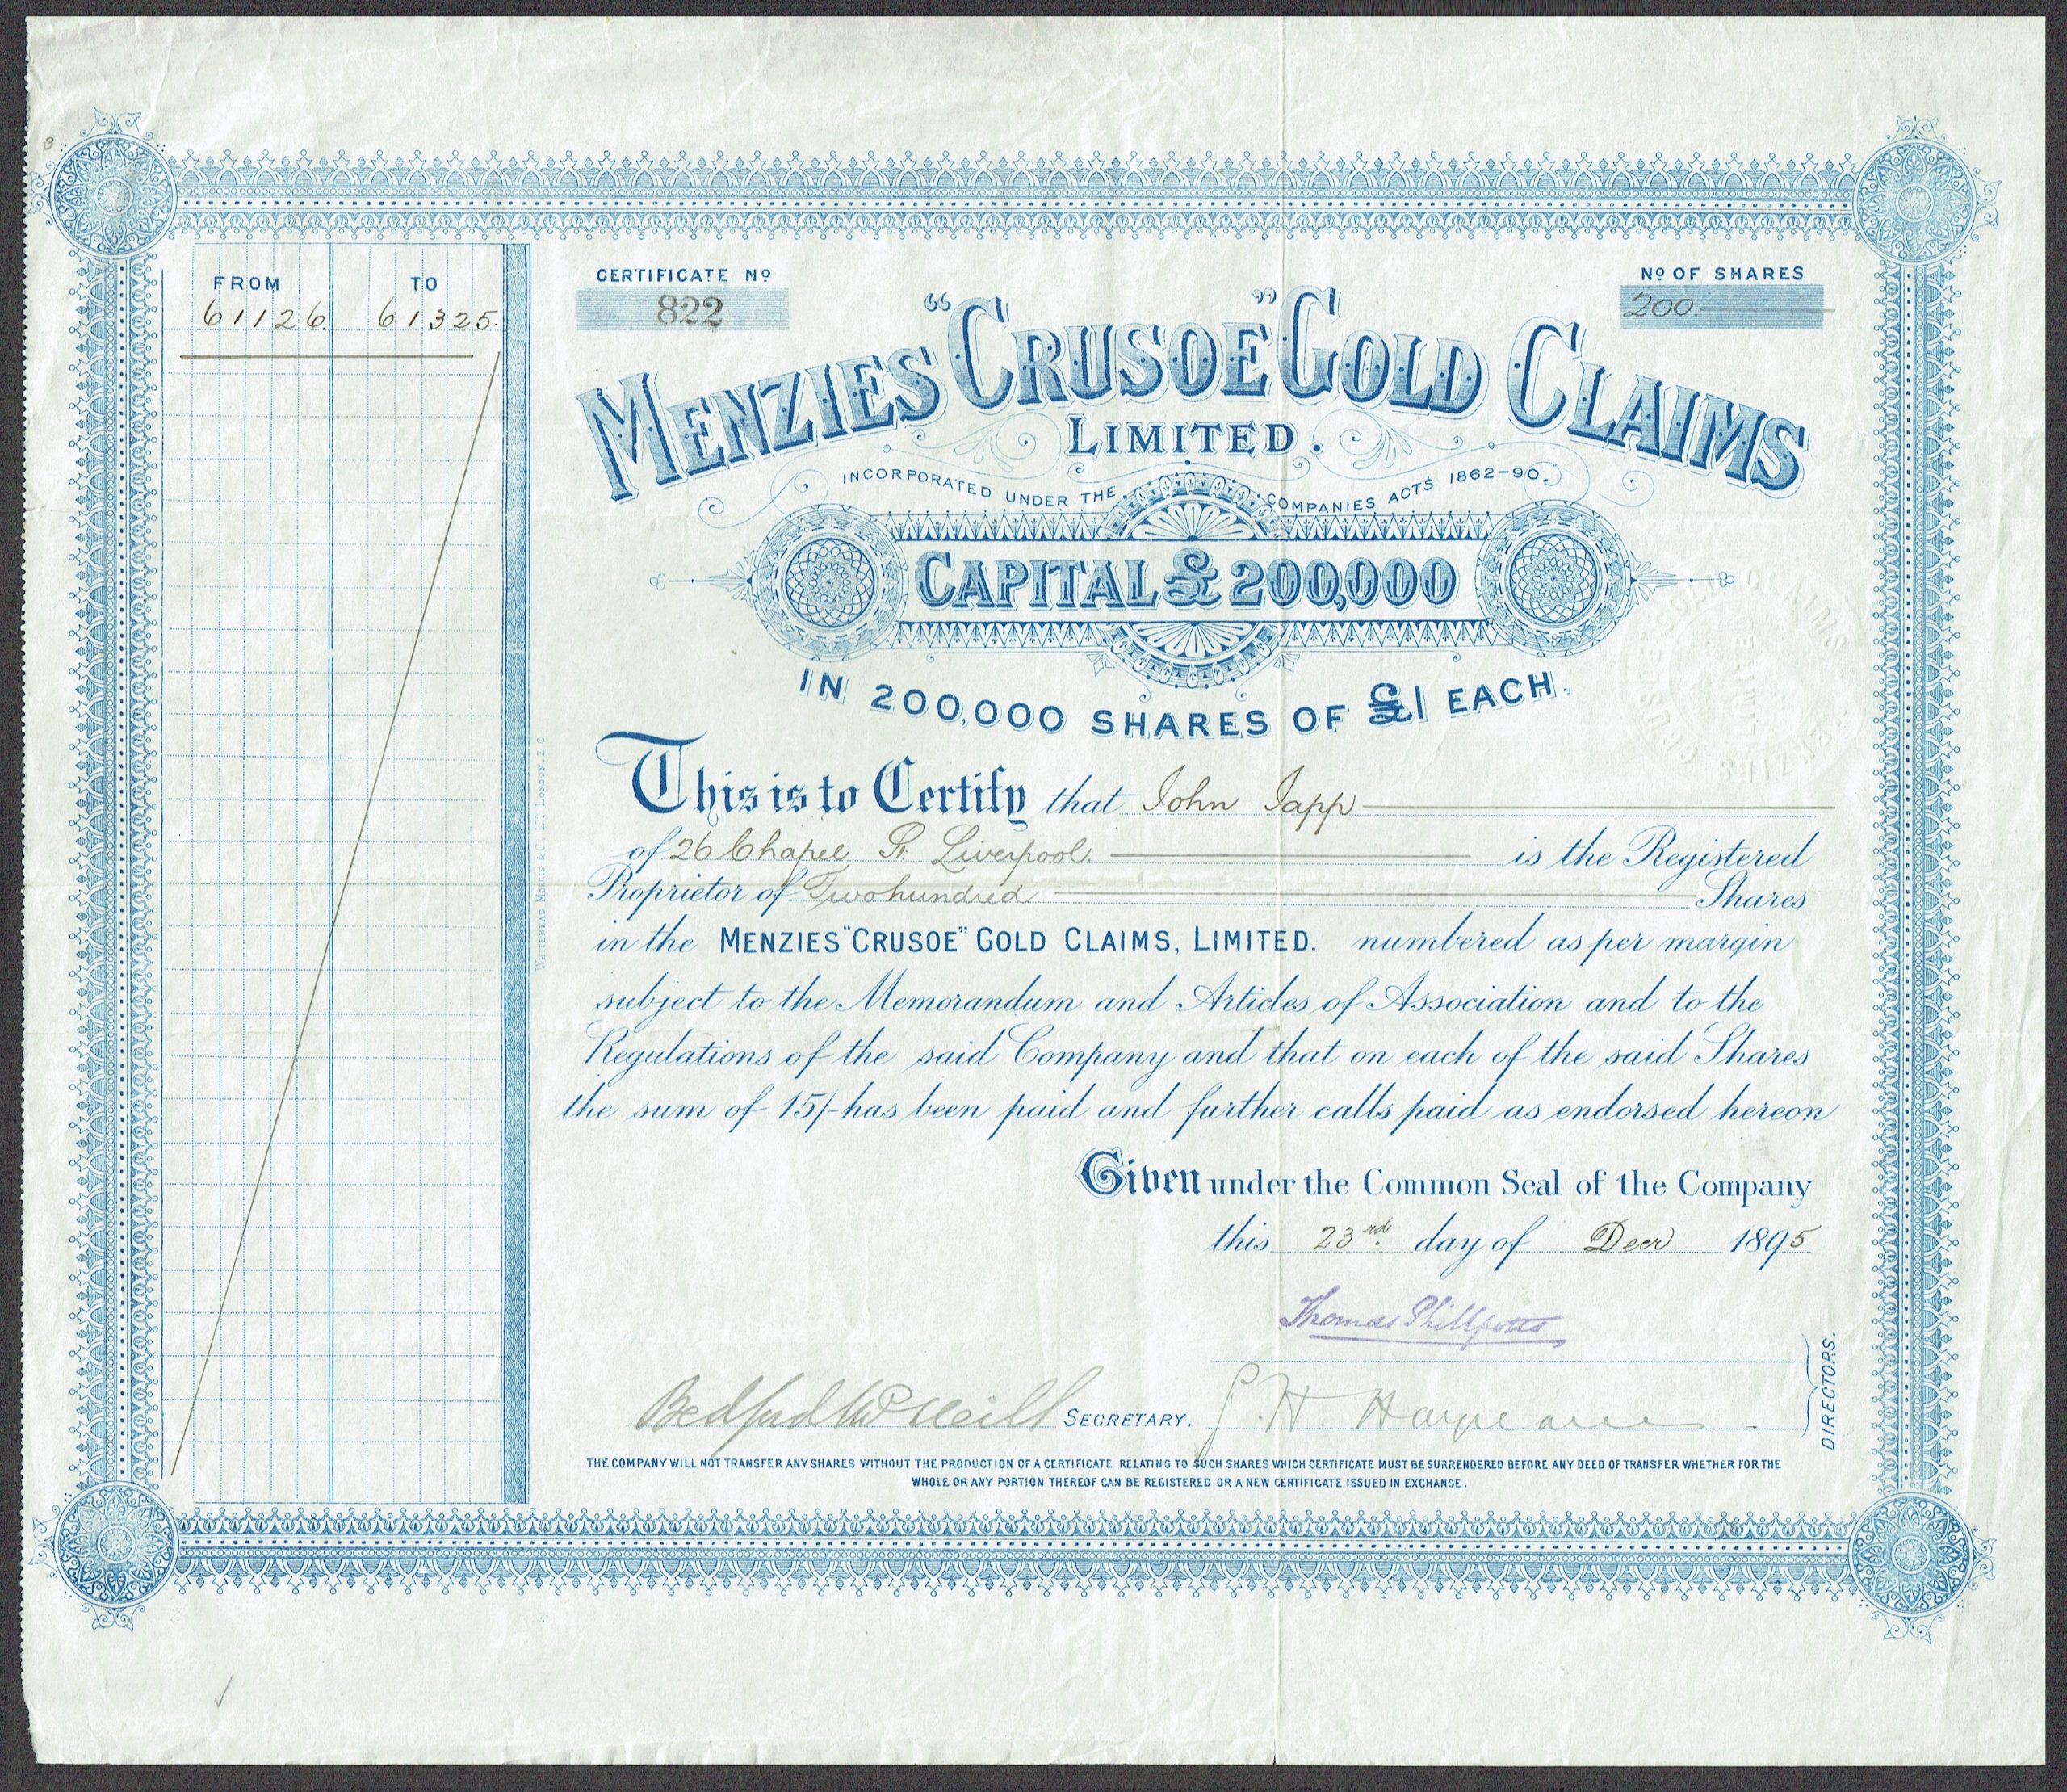 FROM TO
61126 61325
CERTIFICATE Nº
822
Nº OF SHARES
200
MENZIES "CRUSOE" GOLD CLAIMS
LIMITED.
INCORPORATED UNDER THE COMPANIES ACTS 1862-90.
CAPITAL £200,000
IN 200,000 SHARES OF £1 EACH.
This is to Certify that John Japp
of 26 Chapel St. Liverpool. is the Registered
Proprietor of Two hundred Shares
in the MENZIES "CRUSOE" GOLD CLAIMS, LIMITED. numbered as per margin
subject to the Memorandum and Articles of Association and to the
Regulations of the said Company and that on each of the said Shares
the sum of 15/- has been paid and further calls paid as endorsed hereon
Given under the Common Seal of the Company
this 23rd day of Decr 1895
Thomas Phillpotts
Bedford McNeill SECRETARY. G. H.
DIRECTORS.
THE COMPANY WILL NOT TRANSFER ANY SHARES WITHOUT THE PRODUCTION OF A CERTIFICATE RELATING TO SUCH SHARES WHICH CERTIFICATE MUST BE SURRENDERED BEFORE ANY DEED OF TRANSFER WHETHER FOR THE
WHOLE OR ANY PORTION THEREOF CAN BE REGISTERED OR A NEW CERTIFICATE ISSUED IN EXCHANGE.
WHITEHEAD MORRIS & Cº. LTD. LONDON E.C
MENZIES CRUSOE GOLD CLAIMS
LIMITED